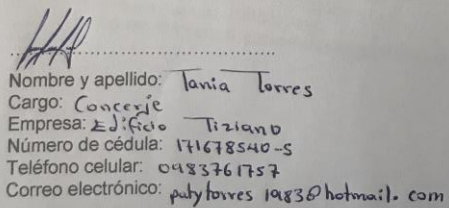 Nombre y apellido: Tania Torres
Cargo: Concerje
Empresa: Edificio Tiziano
Número de cédula: 171678540-5
Teléfono celular: 0983761757
Correo electrónico: patytorres1983@hotmail.com